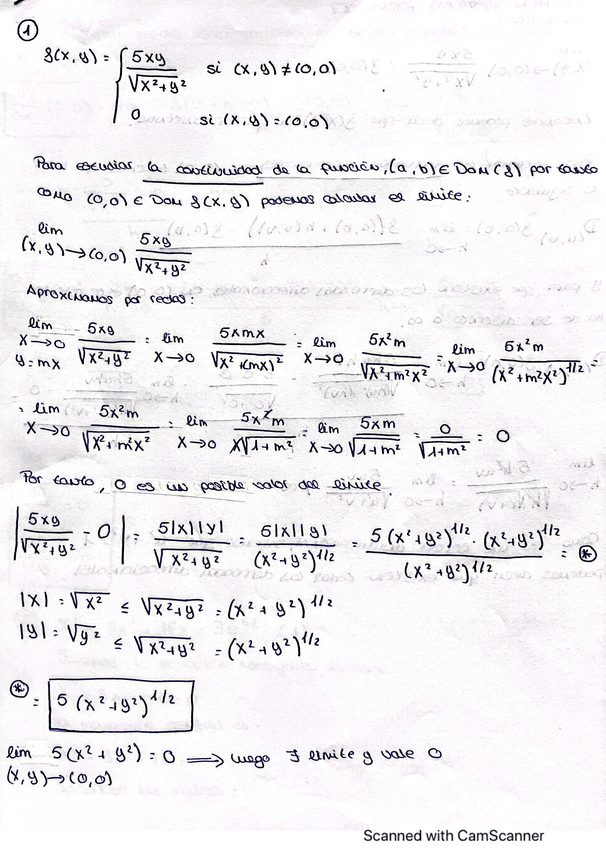 ①
f(x,y) = { 5xy / √(x²+y²) si (x,y) ≠ (0,0)
0 si (x,y) = (0,0)
Para estudiar la continuidad de la función, (a,b) ∈ Dom(f) por tanto
como (0,0) ∈ Dom f(x,y) podemos calcular el límite:
lim (x,y)→(0,0) 5xy / √(x²+y²)
Aproximamos por rectas:
lim x→0 y=mx 5xy / √(x²+y²) = lim x→0 5xmx / √(x²+(mx)²) = lim x→0 5x²m / √(x²+m²x²) = lim x→0 5x²m / (x²+m²x²)^1/2 =
= lim x→0 5x²m / √(x²+m²x²) = lim x→0 5x²m / x√(1+m²) = lim x→0 5xm / √(1+m²) = 0 / √(1+m²) = 0
Por tanto, 0 es un posible valor del límite.
|5xy / √(x²+y²) - 0| = 5|x||y| / √(x²+y²) = 5|x||y| / (x²+y²)^1/2 = 5(x²+y²)^1/2 · (x²+y²)^1/2 / (x²+y²)^1/2 = ⊛
|x| = √x² ≤ √(x²+y²) = (x²+y²)^1/2
|y| = √y² ≤ √(x²+y²) = (x²+y²)^1/2
⊛ = 5(x²+y²)^1/2
lim (x,y)→(0,0) 5(x²+y²) = 0 ⟹ luego ∃ límite y vale 0
Scanned with CamScanner